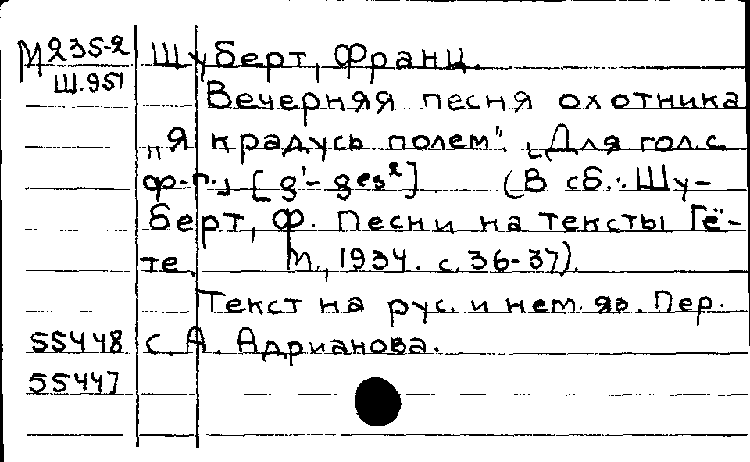 М235-2 Шуберт, Франц.
Ш.951
Вечерняя песня охотника
„Я крадусь полем". [Для гол. с
ф-п., [g'- ges²] (В сб.: Шу-
берт, Ф. Песни на тексты Гё-
те. М., 1934. с. 36-37).
Текст на рус. и нем. яз. Пер.
55448 с. А. Адрианова.
55447